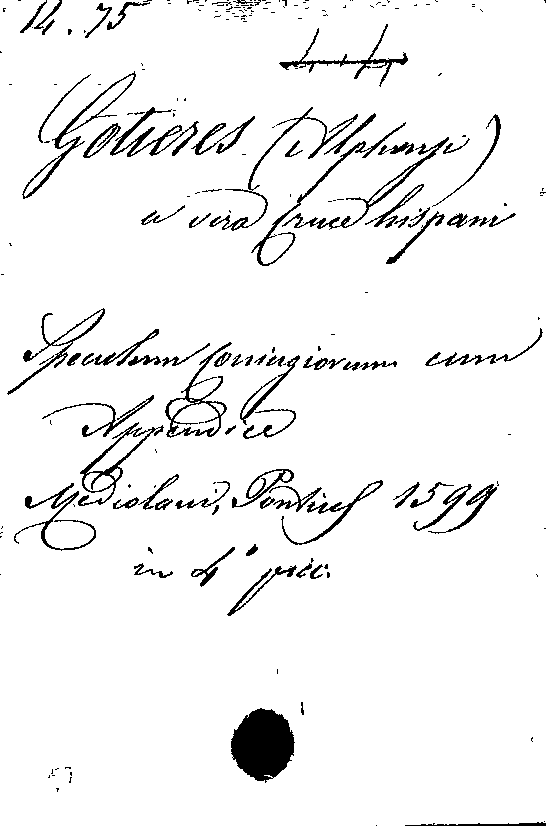 12.75
Gotieres (Alphonsi)
a vera Cruce hispani
Speculum Coniugiorum cum
Appendice
Mediolani, Pontius 1599
in 4° picc.